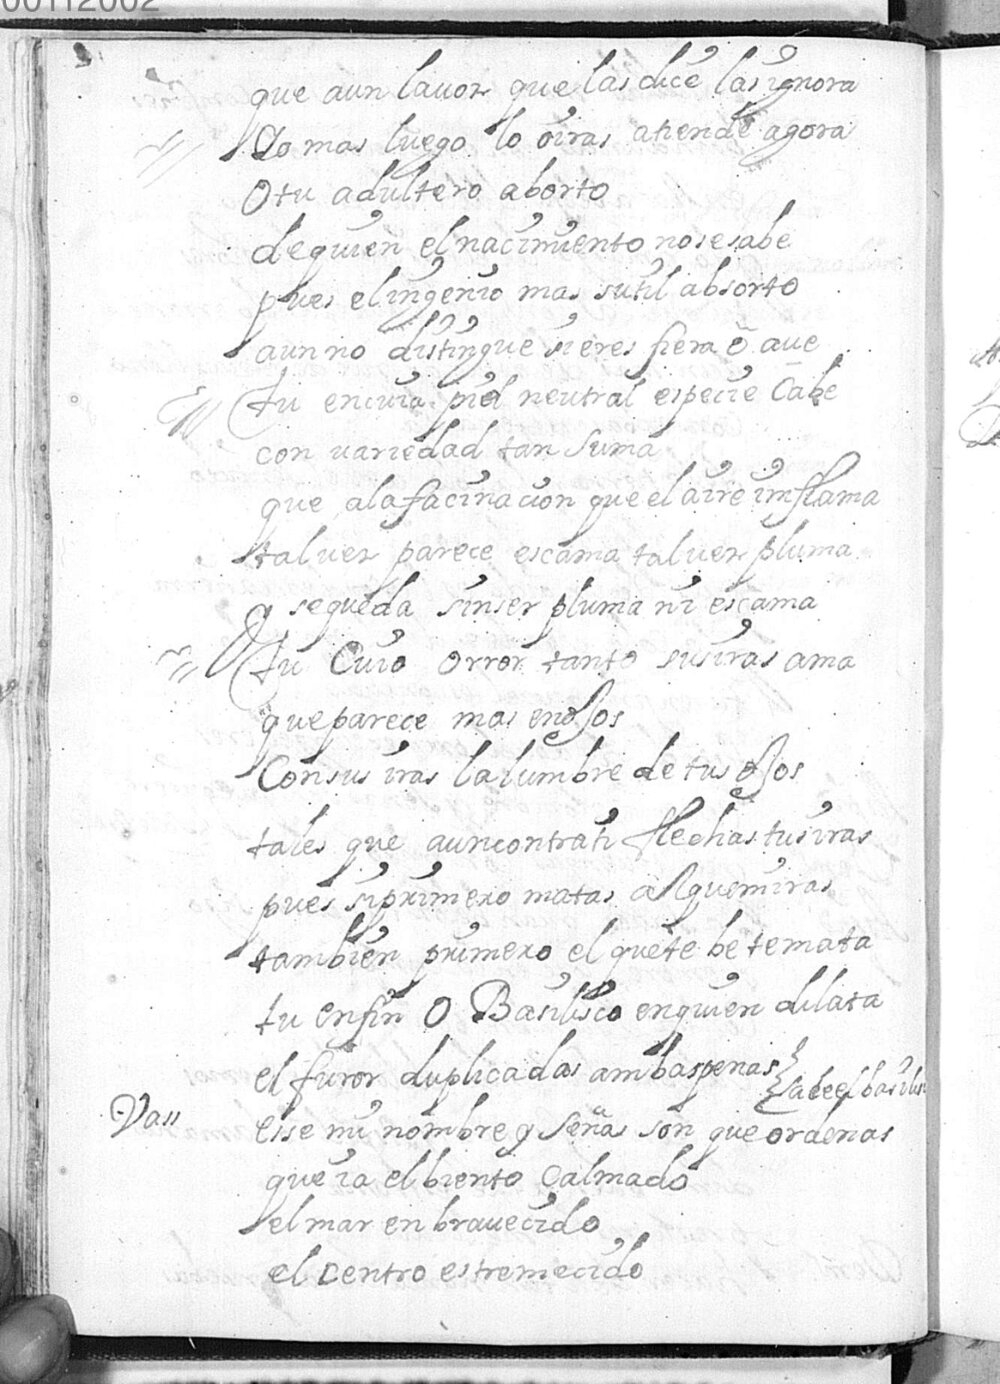 00112002
que aun la uoz que las dice las ignora
Yo mas luego lo oiras atiende agora
O tu adultero aborto
de quien el nacimiento no se sabe
pues el ingenio mas sutil absorto
aun no distingue si eres fiera o aue
tu en cuia piel neutral especie Cabe
con uariedad tan suma
que a la facinacion que el aire imflama
tal uez parece escama tal uez pluma
y se queda sin ser pluma ni escama
tu Cuio orror tanto sus iras ama
que parece mas enoJos
Con sus iras la lumbre de tus oJos
tales que aun contra ti flechas tus iras
pues si primero matas al que miras
tambien primero el que te be te mata
tu en fin O Basilisco en quien dilata
el furor duplicadas ambas penas
sale el basilis
Vas
esse mi nombre y señas son que ordenas
que ia el biento Calmado
el mar enbrauecido
el centro estremecido